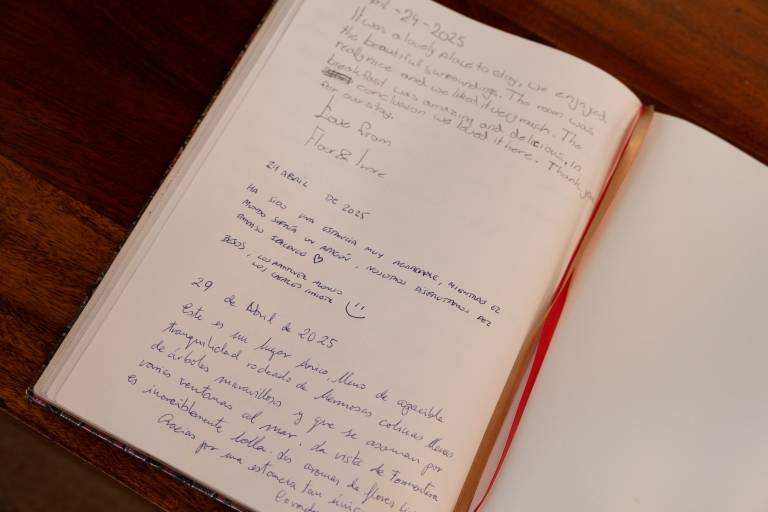 -24-2025
It was a lovely place to stay, we enjoyed
the beautiful surroundings. The room was
really nice and we liked it very much. The
breakfast was amazing and delicious. In
conclusion we loved it here. Thank you
for our stay.
Love from
Floor &
29 ABRIL DE 2025
HA SIDO UNA ESTANCIA MUY AGRADABLE, MIENTRAS EL
MUNDO SUFRÍA UN APAGÓN, NOSOTROS DISFRUTAMOS DEL
PARAÍSO
BESOS,
29 de Abril de 2025
Este es un lugar único, lleno de agradable
tranquilidad rodeado de hermosas colinas llenas
de árboles maravillosos y que se asoman por
varias ventanas al mar. La vista de Formentera
es increíblemente bella. Los aromas de flores
Gracias por una estancia tan